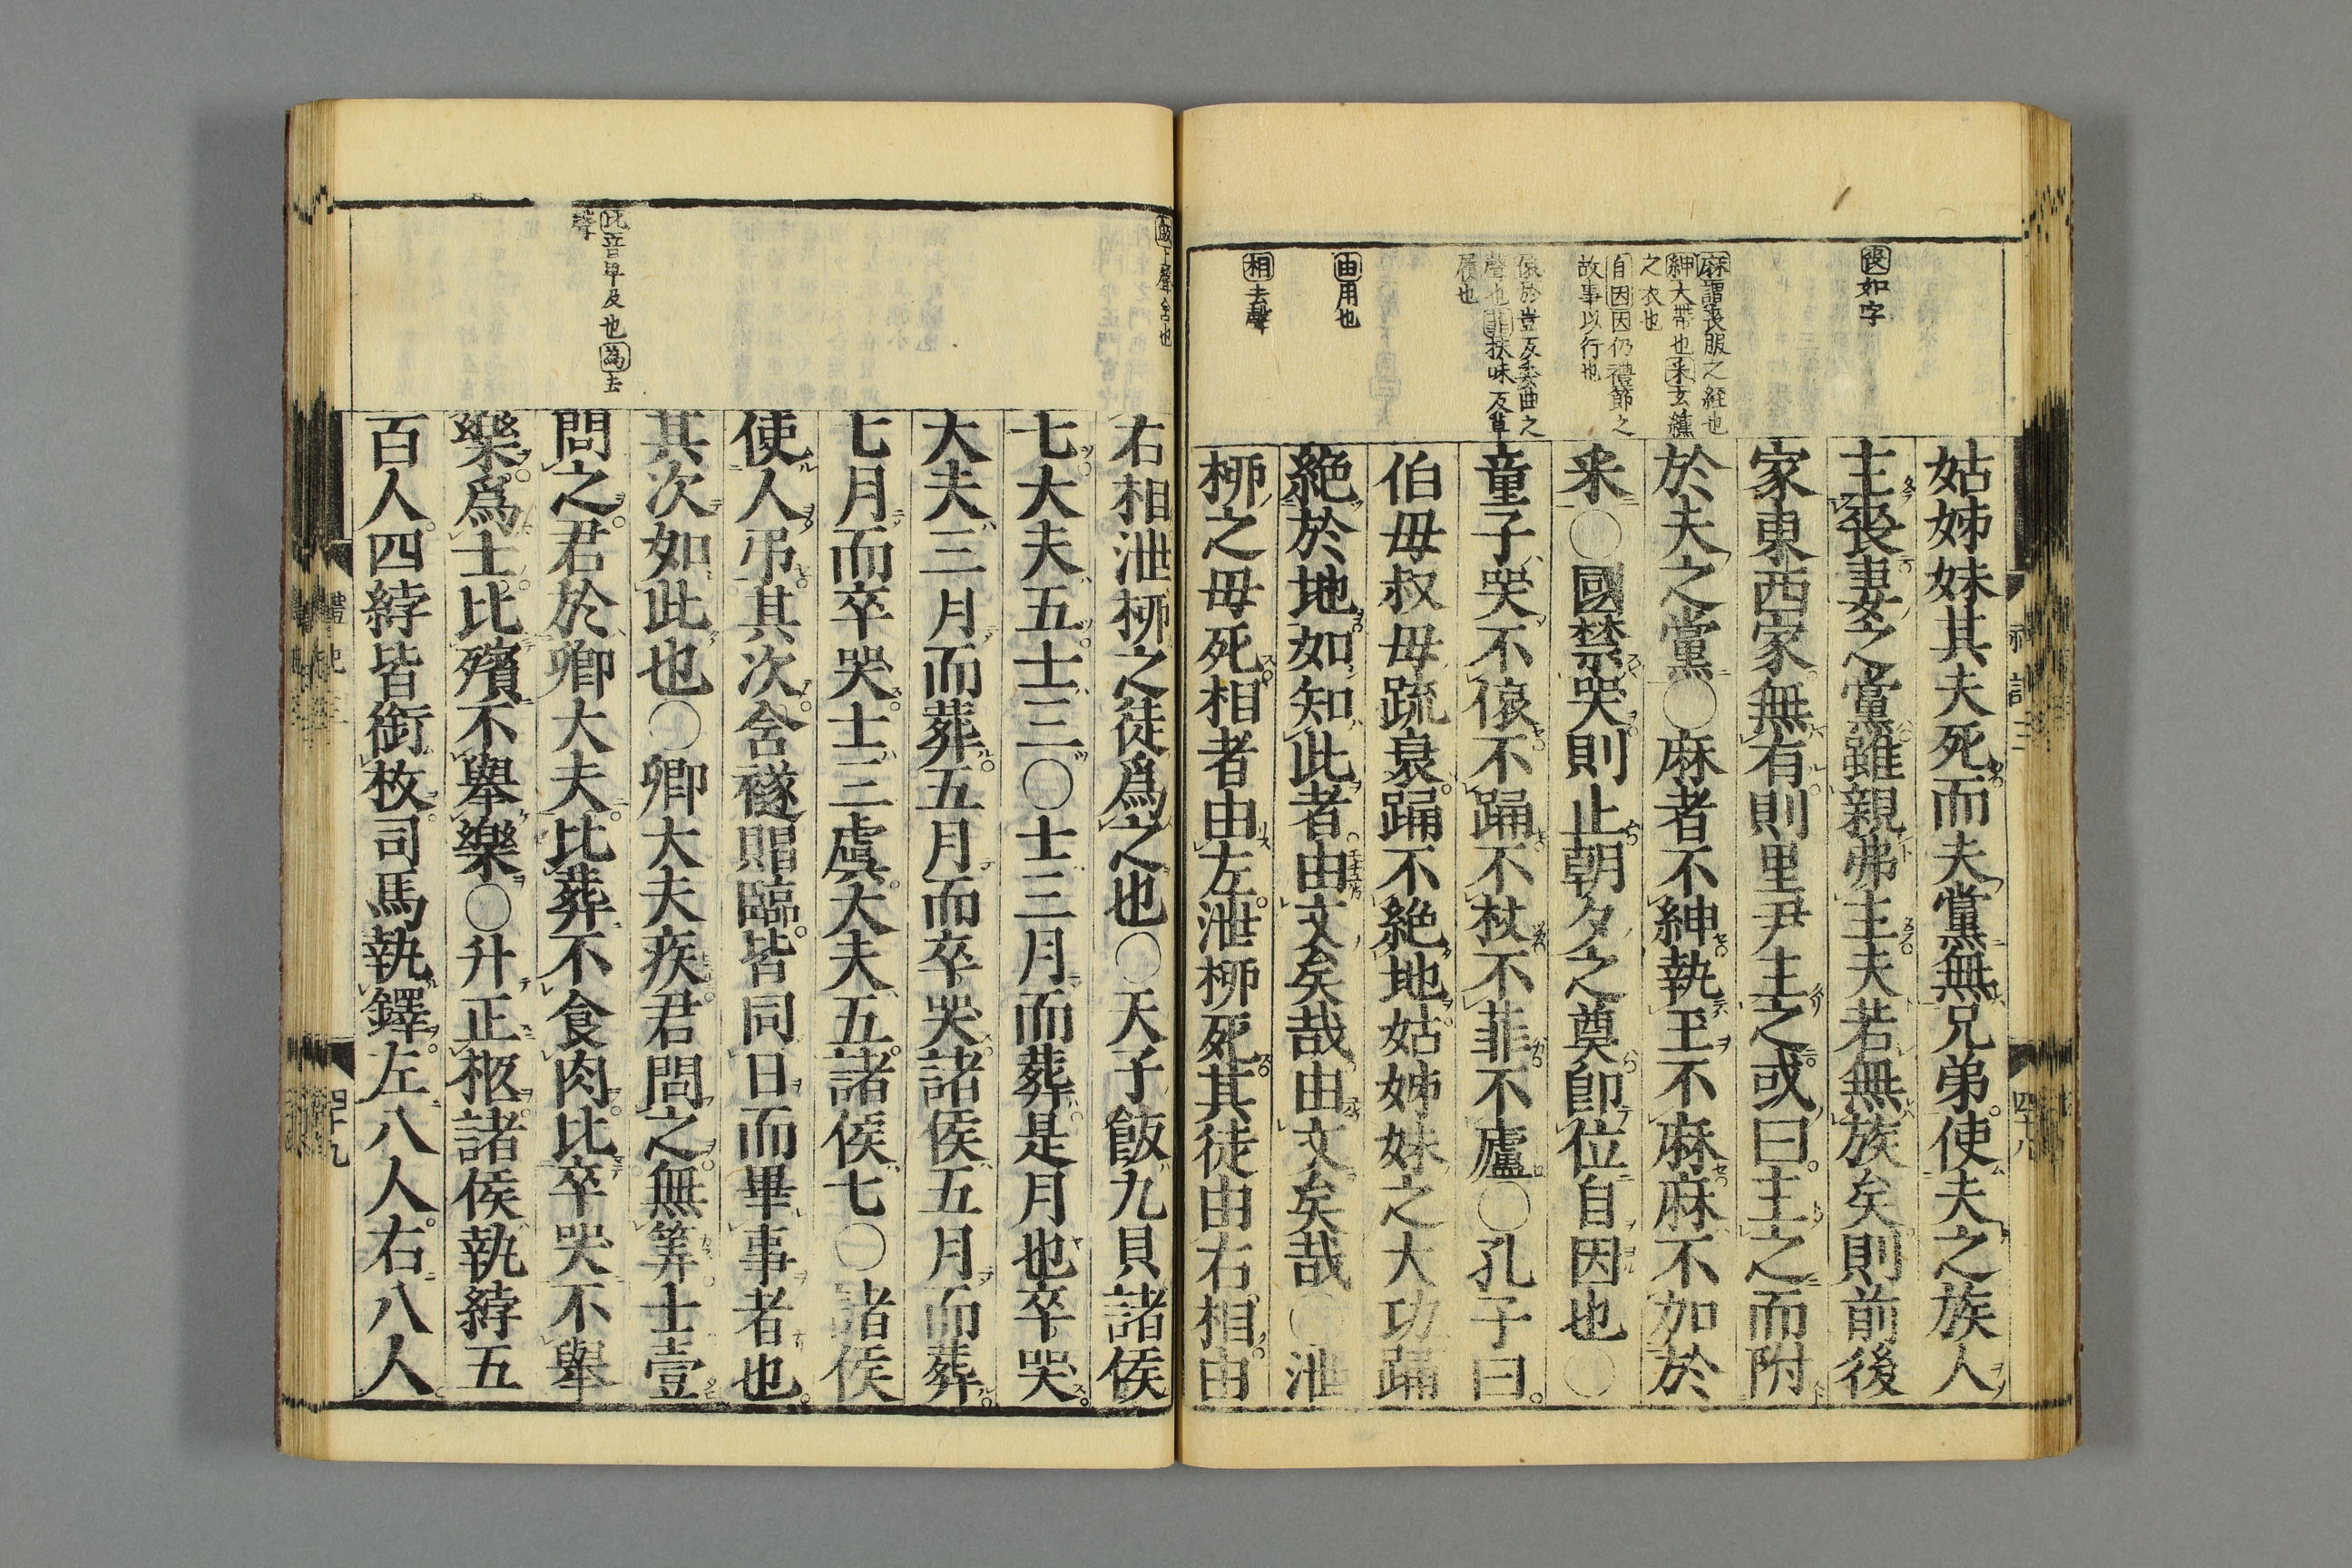 喪如字
麻謂喪服之絰也
紳大帶也采玄纁
之衣也
自因因仍禮節之
故事以行也
偯於豈反委曲之
聲也菲扶味反草
屨也
由用也
相去聲
姑姊妹其夫死而夫黨無兄弟使夫之族人
主喪妻之黨雖親弗主夫若無族矣則前後
家東西家無有則里尹主之或曰主之而附
於夫之黨○麻者不紳執玉不麻麻不加於
采○國禁哭則止朝夕之奠卽位自因也○
童子哭不偯不踊不杖不菲不廬○孔子曰
伯母叔母疏衰踊不絶地姑姊妹之大功踊
絶於地如知此者由文矣哉由文矣哉○泄
柳之母死相者由左泄柳死其徒由右相由
禮記三
四十八
飯上聲含也
比音卑及也爲去
聲
右相泄柳之徒爲之也○天子飯九貝諸侯
七大夫五士三○士三月而葬是月也卒哭
大夫三月而葬五月而卒哭諸侯五月而葬
七月而卒哭士三虞大夫五諸侯七○諸侯
使人弔其次含襚賵臨皆同日而畢事者也
其次如此也○卿大夫疾君問之無筭士壹
問之君於卿大夫比葬不食肉比卒哭不舉
樂爲士比殯不舉樂○升正柩諸侯執綍五
百人四綍皆銜枚司馬執鐸左八人右八人
禮記三
四十九